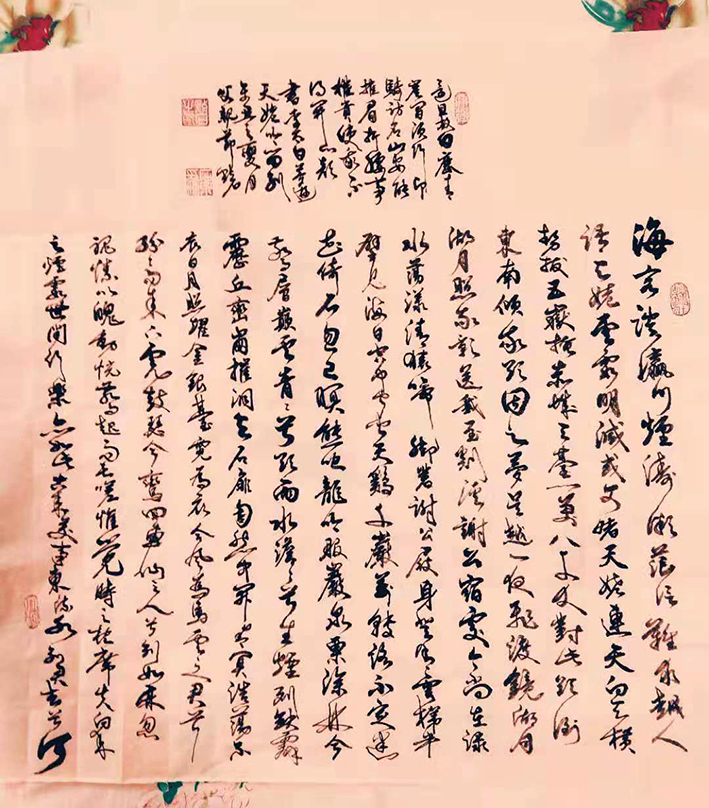 海客談瀛洲煙濤微茫信難求越人
語天姥雲霞明滅或可睹天姥連天向天橫
勢拔五嶽掩赤城天臺一萬八千丈對此欲倒
東南傾我欲因之夢吳越一夜飛渡鏡湖月
湖月照我影送我至剡溪謝公宿處今尚在淥
水蕩漾清猿啼腳著謝公屐身登青雲梯半
壁見海日空中聞天鷄千巖萬轉路不定迷
花倚石忽已暝熊咆龍吟殷巖泉栗深林兮
驚層巔雲青青兮欲雨水澹澹兮生煙列缺霹
靂丘巒崩摧洞天石扉訇然中開青冥浩蕩不
日月照耀金銀臺霓為衣兮風為馬雲之君兮
紛紛而來下虎鼓瑟兮鸞回車仙之人兮列如麻忽
魂悸以魄動怳驚起而長嗟惟覺時之枕席失向來
之煙霞世間行樂亦如此古來萬事東流水別君去兮何
還且放白鹿青
崖間須行即
騎訪名山安能
摧眉折腰事
權貴使我不
得開心顏
書李太白夢遊
天姥吟留別
之夏月